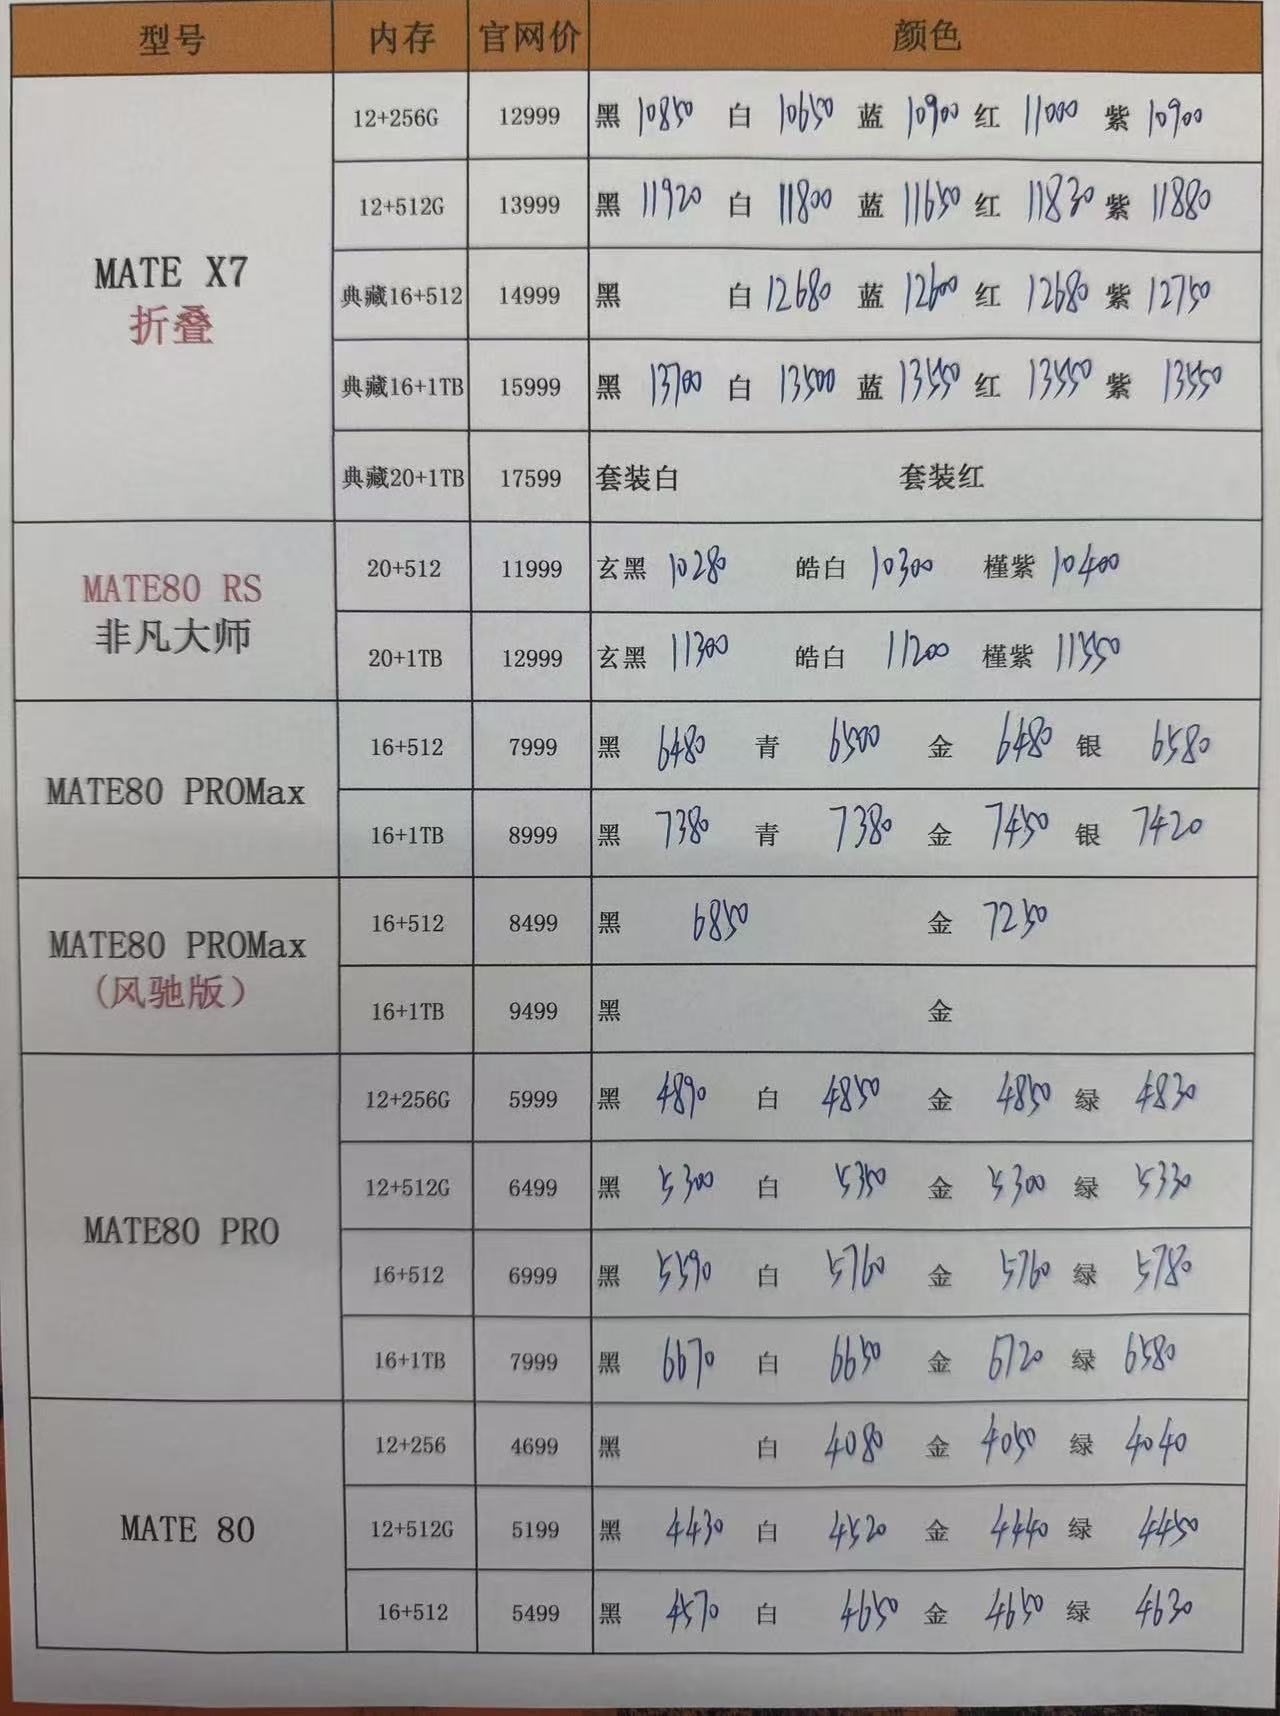 型号 内存 官网价 颜色
12+256G 12999 黑 10850 白 10650 蓝 10900 红 11000 紫 10900
12+512G 13999 黑 11920 白 11800 蓝 11650 红 11830 紫 11880
MATE X7
折叠
典藏16+512 14999 黑 白 12680 蓝 12600 红 12680 紫 12750
典藏16+1TB 15999 黑 13700 白 13500 蓝 13550 红 13550 紫 13550
典藏20+1TB 17599 套装白 套装红
MATE80 RS
非凡大师
20+512 11999 玄黑 10280 皓白 10300 槿紫 10400
20+1TB 12999 玄黑 11300 皓白 11200 槿紫 11550
MATE80 PROMax
16+512 7999 黑 6480 青 6500 金 6480 银 6580
16+1TB 8999 黑 7380 青 7380 金 7450 银 7420
MATE80 PROMax
(风驰版)
16+512 8499 黑 6850 金 7250
16+1TB 9499 黑 金
MATE80 PRO
12+256G 5999 黑 4890 白 4850 金 4850 绿 4830
12+512G 6499 黑 5300 白 5350 金 5300 绿 5330
16+512 6999 黑 5590 白 5760 金 5760 绿 5780
16+1TB 7999 黑 6670 白 6650 金 6720 绿 6580
MATE 80
12+256 4699 黑 白 4080 金 4050 绿 4040
12+512G 5199 黑 4430 白 4520 金 4440 绿 4450
16+512 5499 黑 4570 白 4650 金 4650 绿 4630